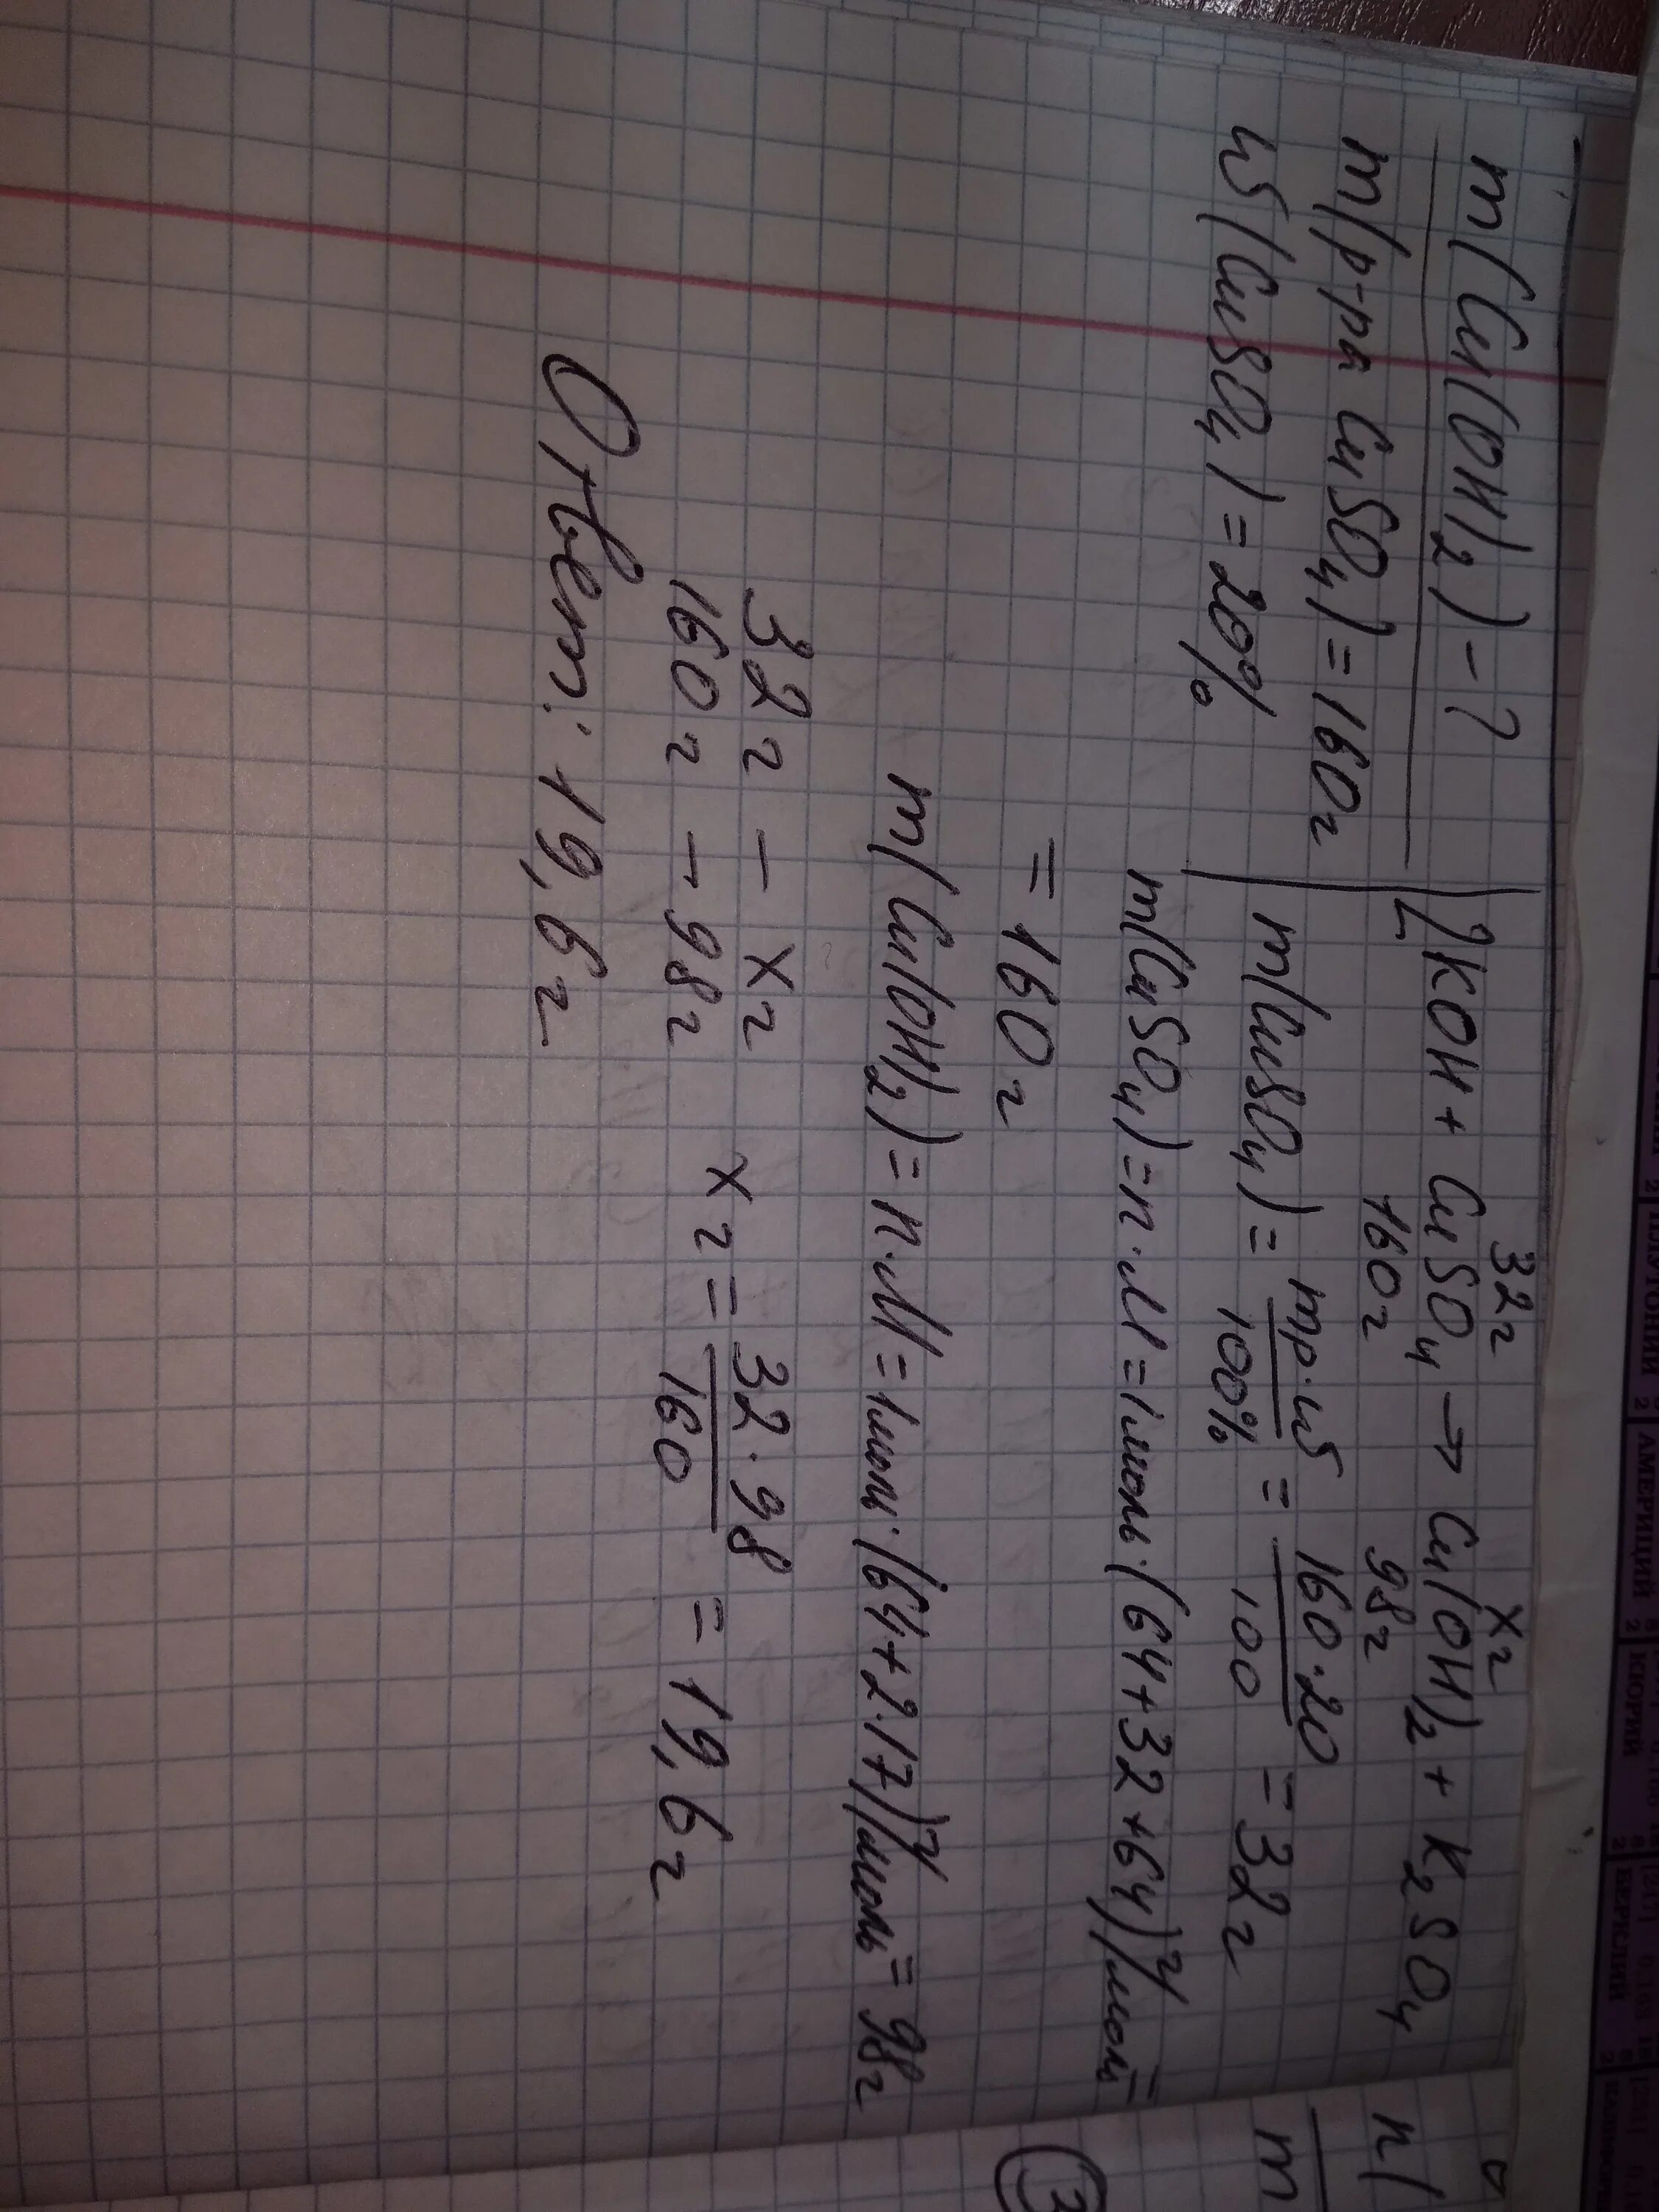 m(Cu(OH)₂) - ?
m(р-ра CuSO₄) = 160 г
ω(CuSO₄) = 20%
32 г х г
2KOH + CuSO₄ → Cu(OH)₂ + K₂SO₄
160 г 98 г
m(CuSO₄) = mр·ω / 100% = 160·20 / 100 = 32 г
m(CuSO₄) = n·M = 1моль·(64+32+64) г/моль =
= 160 г
m(Cu(OH)₂) = n·M = 1моль·(64+2·17) г/моль = 98 г
32 г – х г
160 г – 98 г
х г = 32·98 / 160 = 19,6 г
Ответ: 19,6 г
АМЕРИЦИЙ
КЮРИЙ
БЕРКЛИЙ